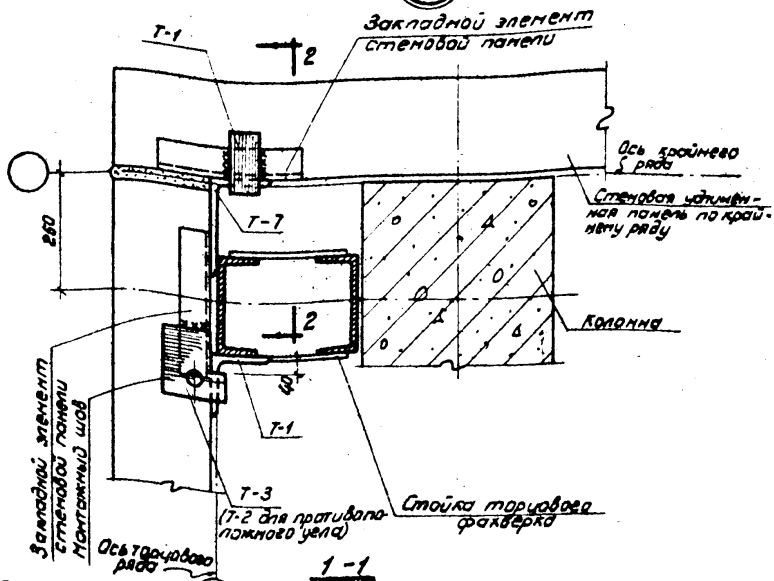 Т-1
2
Закладной элемент
стеновой панели
Ось крайнего
ряда
Стеновая удлинен-
ная панель по край-
нему ряду
Т-7
260
2
Колонна
40
Т-1
Закладной элемент
стеновой панели
Монтажный шов
Т-3
(Т-2 для противопо-
ложного угла)
Стойка торцового
фахверка
Ось торцового
ряда
1-1